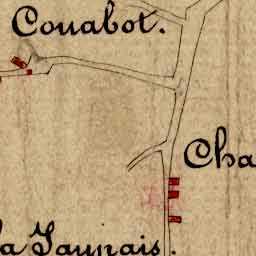 Couabot.
Cha
la Jaunais.